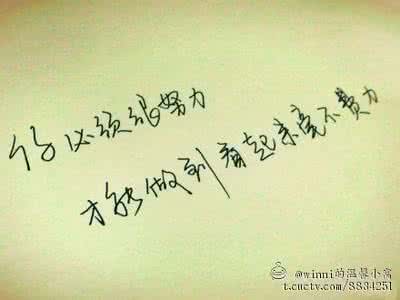 你必须很努力
才能做到看起来毫不费力
@winni的温馨小窝
t.cnctv.com/8834251